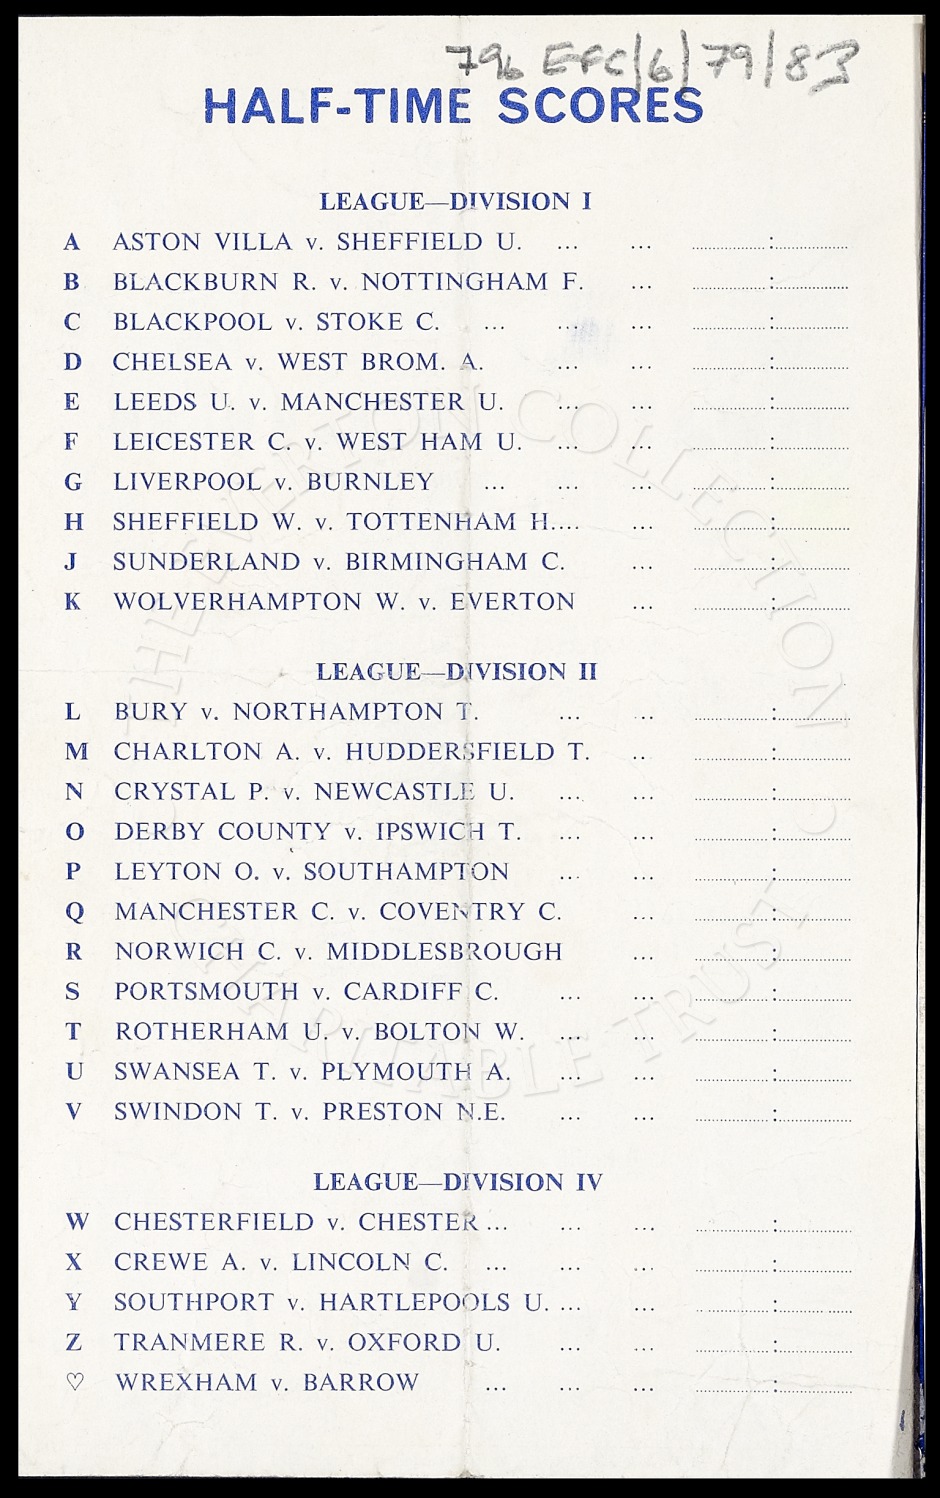 796 EFC/6/79/83
HALF-TIME SCORES
LEAGUE—DIVISION I
A ASTON VILLA v. SHEFFIELD U. ... ... ..............:..............
B BLACKBURN R. v. NOTTINGHAM F. ... ..............:..............
C BLACKPOOL v. STOKE C. ... ... ... ..............:..............
D CHELSEA v. WEST BROM. A. ... ... ..............:..............
E LEEDS U. v. MANCHESTER U. ... ... ..............:..............
F LEICESTER C. v. WEST HAM U. ... ... ..............:..............
G LIVERPOOL v. BURNLEY ... ... ... ..............:..............
H SHEFFIELD W. v. TOTTENHAM H.... ... ..............:..............
J SUNDERLAND v. BIRMINGHAM C. ... ..............:..............
K WOLVERHAMPTON W. v. EVERTON ... ..............:..............
LEAGUE—DIVISION II
L BURY v. NORTHAMPTON T. ... ... ..............:..............
M CHARLTON A. v. HUDDERSFIELD T. .. ..............:..............
N CRYSTAL P. v. NEWCASTLE U. ... ... ..............:..............
O DERBY COUNTY v. IPSWICH T. ... ... ..............:..............
P LEYTON O. v. SOUTHAMPTON ... ... ..............:..............
Q MANCHESTER C. v. COVENTRY C. ... ..............:..............
R NORWICH C. v. MIDDLESBROUGH ... ..............:..............
S PORTSMOUTH v. CARDIFF C. ... ... ..............:..............
T ROTHERHAM U. v. BOLTON W. ... ... ..............:..............
U SWANSEA T. v. PLYMOUTH A. ... ... ..............:..............
V SWINDON T. v. PRESTON N.E. ... ... ..............:..............
LEAGUE—DIVISION IV
W CHESTERFIELD v. CHESTER ... ... ... ..............:..............
X CREWE A. v. LINCOLN C. ... ... ... ..............:..............
Y SOUTHPORT v. HARTLEPOOLS U. ... ... ..............:..............
Z TRANMERE R. v. OXFORD U. ... ... ..............:..............
♡ WREXHAM v. BARROW ... ... ... ..............:..............
THE EVERTON COLLECTION
CHARITABLE TRUST